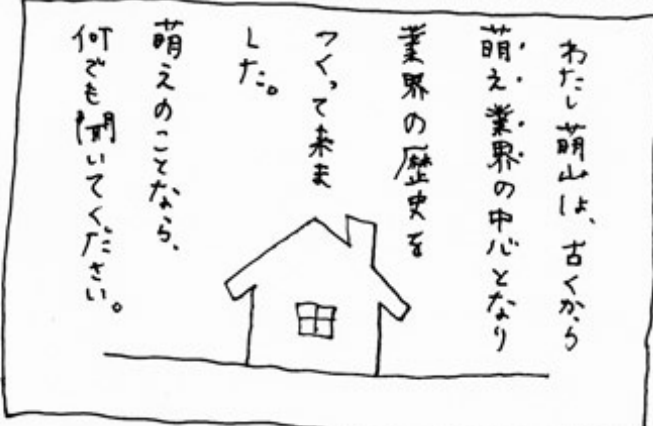 わたし萌山は、古くから
萌え業界の中心となり
業界の歴史を
つくって来ま
した。
萌えのことなら、
何でも聞いてください。